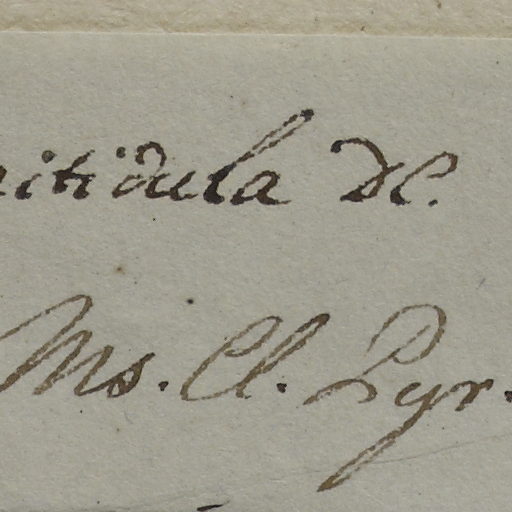 nitidula DC.
Ms. Cl. Pyr.